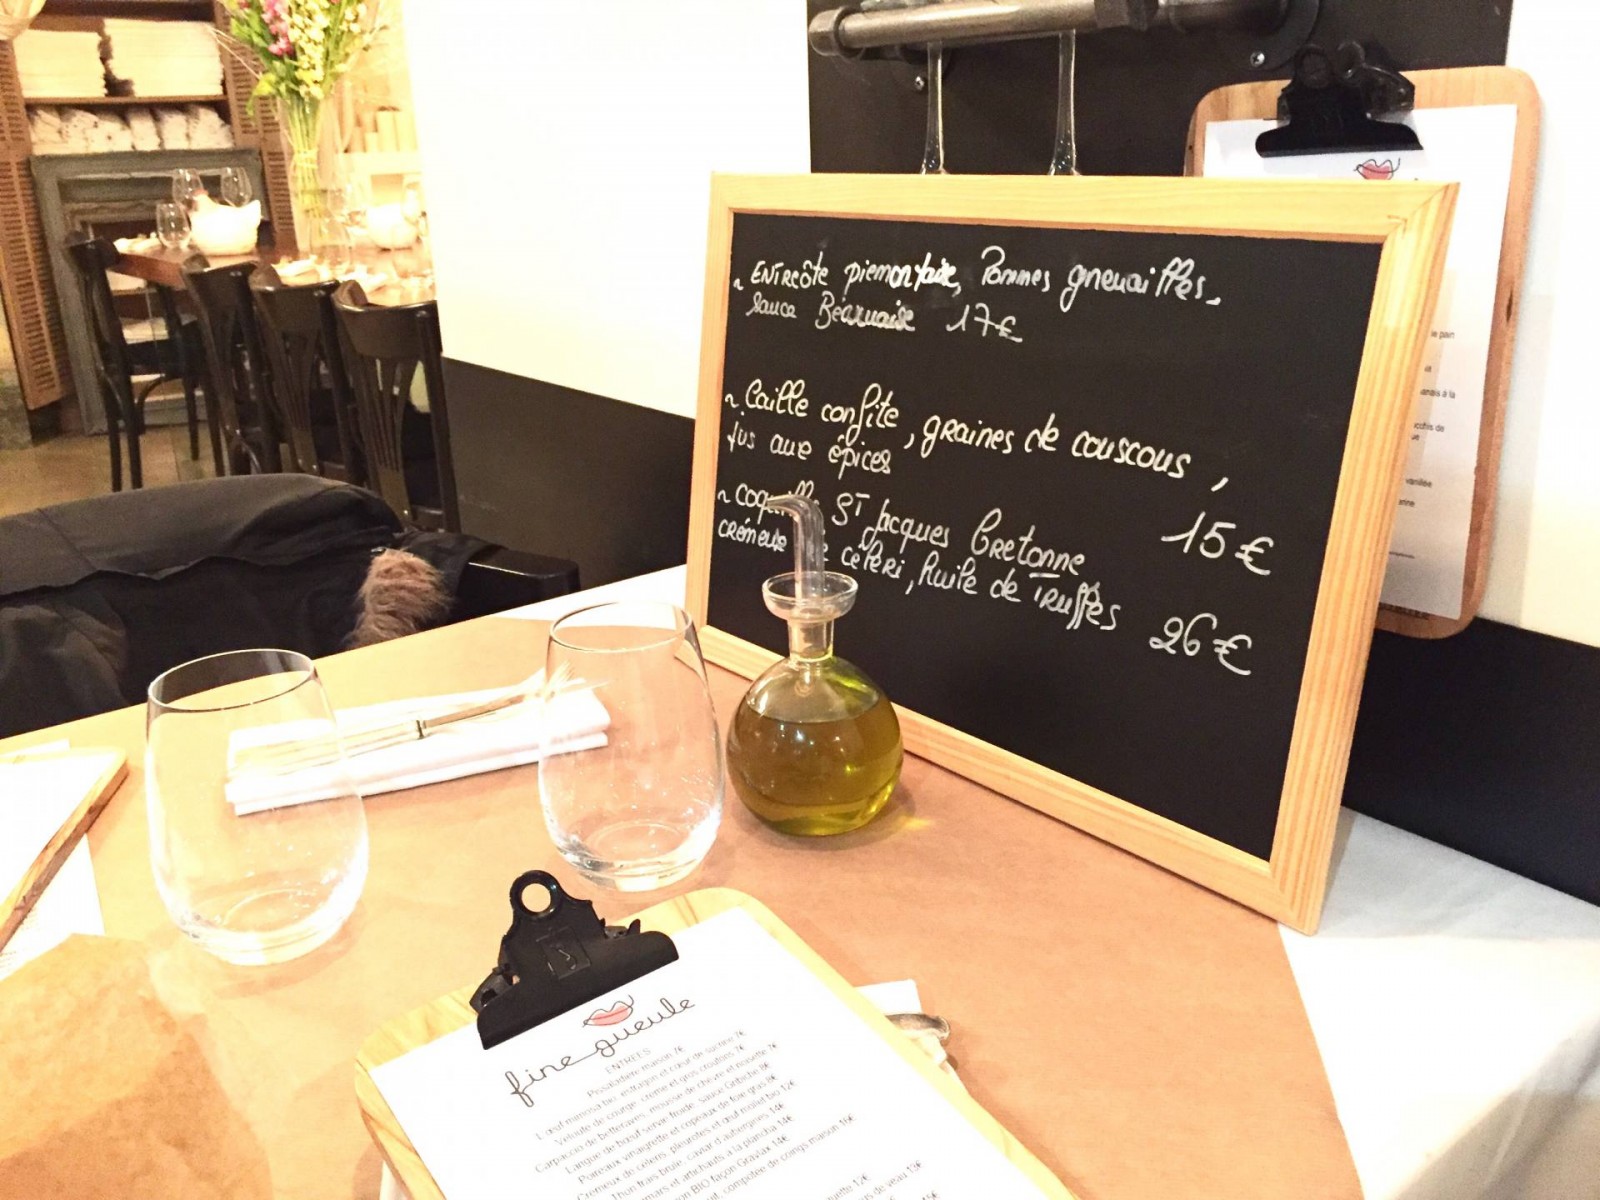 ~ ENTRCÔTE piemontaise, Pommes grenailles.
sauce Béarnaise 17€
~ Caille confite, graines de couscous,
jus aux épices
15€
~ coquille ST Jacques Bretonne
crémeux de céleri, huile de Truffes 26€
fine gueule
ENTREES
Pissaladière maison 7€
Œuf mimosa bio, estragon et cœur de sucrine 7€
Velouté de courge, crème et gros croutons 7€
Carpaccio de betteraves, mousse de chèvre et noisette 7€
Langue de bœuf servie froide, sauce Gribiche 8€
Poireaux vinaigrette et copeaux de foie gras 8€
Crémeux de céleris, pleurotes et œuf mollet bio 12€
Thon frais brulé, caviar d'aubergines 14€
et artichauts a la plancha 14€
BIO façon Gravlax 14€
compotée de coings maison 16€
12€
de veau 13€
le pain
vanillée